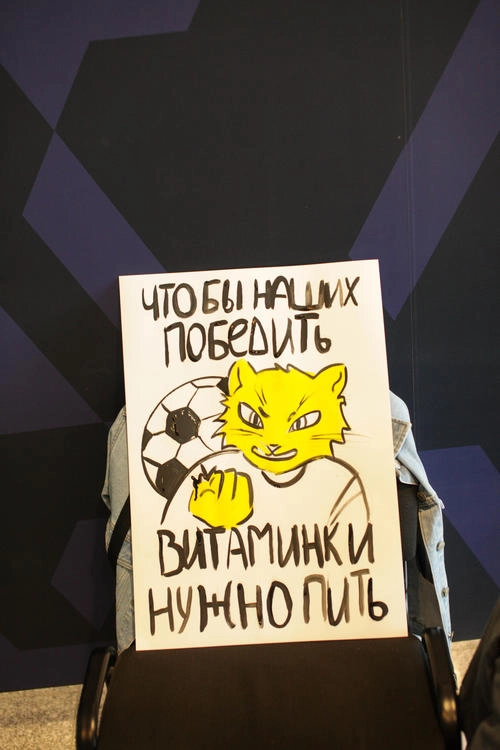 ЧТОБЫ НАШИХ
ПОБЕДИТЬ
ВИТАМИНКИ
НУЖНО ПИТЬ